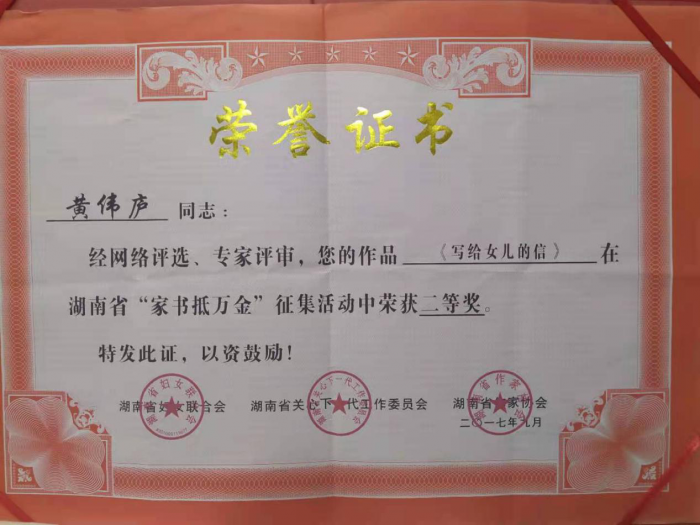 荣誉证书
黄伟庐 同志：
经网络评选、专家评审，您的作品 《写给女儿的信》 在
湖南省“家书抵万金”征集活动中荣获二等奖。
特发此证，以资鼓励！
湖南省妇女联合会 湖南省关心下一代工作委员会 湖南省作家协会
二〇一七年九月